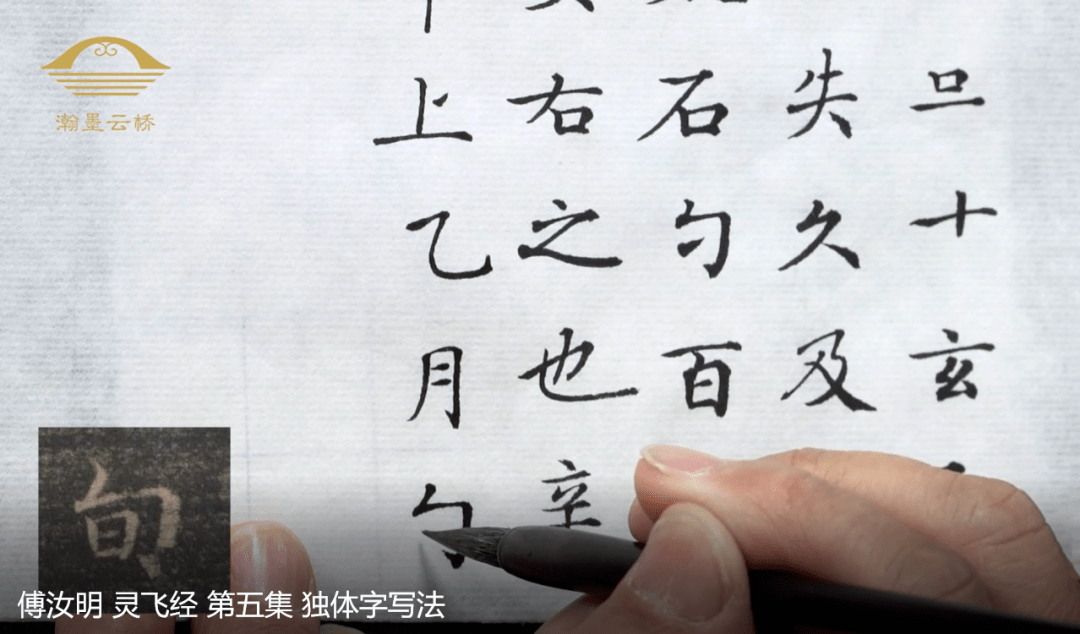 瀚墨云桥
十玄
失久及
石百
右之也辛
上乙月
旬
傅汝明 灵飞经 第五集 独体字写法